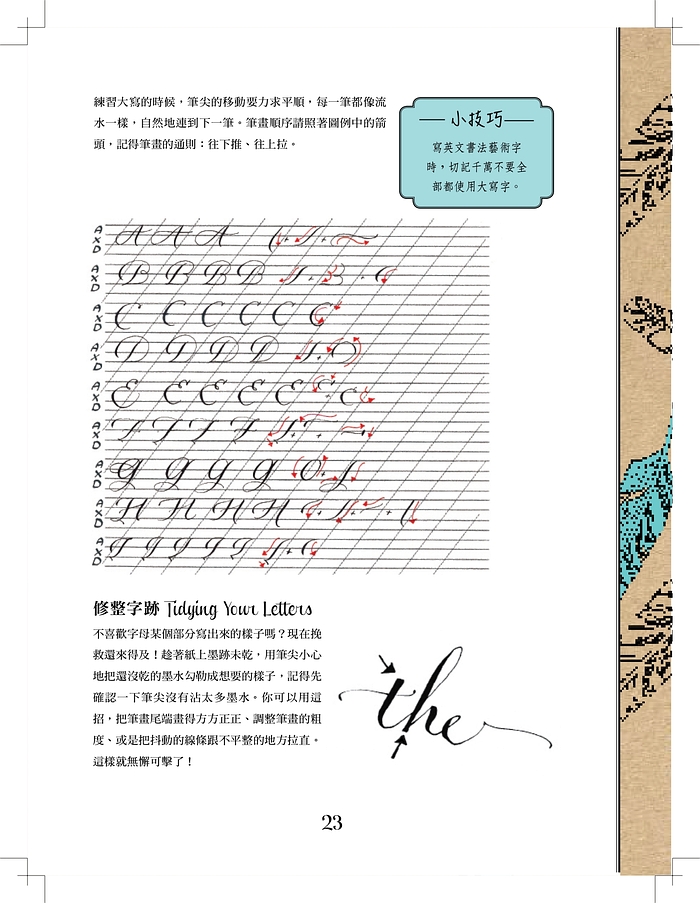 練習大寫的時候，筆尖的移動要力求平順，每一筆都像流
水一樣，自然地連到下一筆。筆畫順序請照著圖例中的箭
頭，記得筆畫的通則：往下推、往上拉。
小技巧
寫英文書法藝術字
時，切記千萬不要全
部都使用大寫字。
A A A A
X
D
A B B B B
X
D
A C C C C C C
X
D
A D D D D
X
D
A E E E E E
X
D
A F F F F
X
D
A G G G G
X
D
A H H H H
X
D
A I I I I I
X
D
修整字跡 Tidying Your Letters
不喜歡字母某個部分寫出來的樣子嗎？現在挽
救還來得及！趁著紙上墨跡未乾，用筆尖小心
地把還沒乾的墨水勾勒成想要的樣子，記得先
確認一下筆尖沒有沾太多墨水。你可以用這
招，把筆畫尾端畫得方方正正、調整筆畫的粗
度、或是把抖動的線條跟不平整的地方拉直。
這樣就無懈可擊了！
the
23